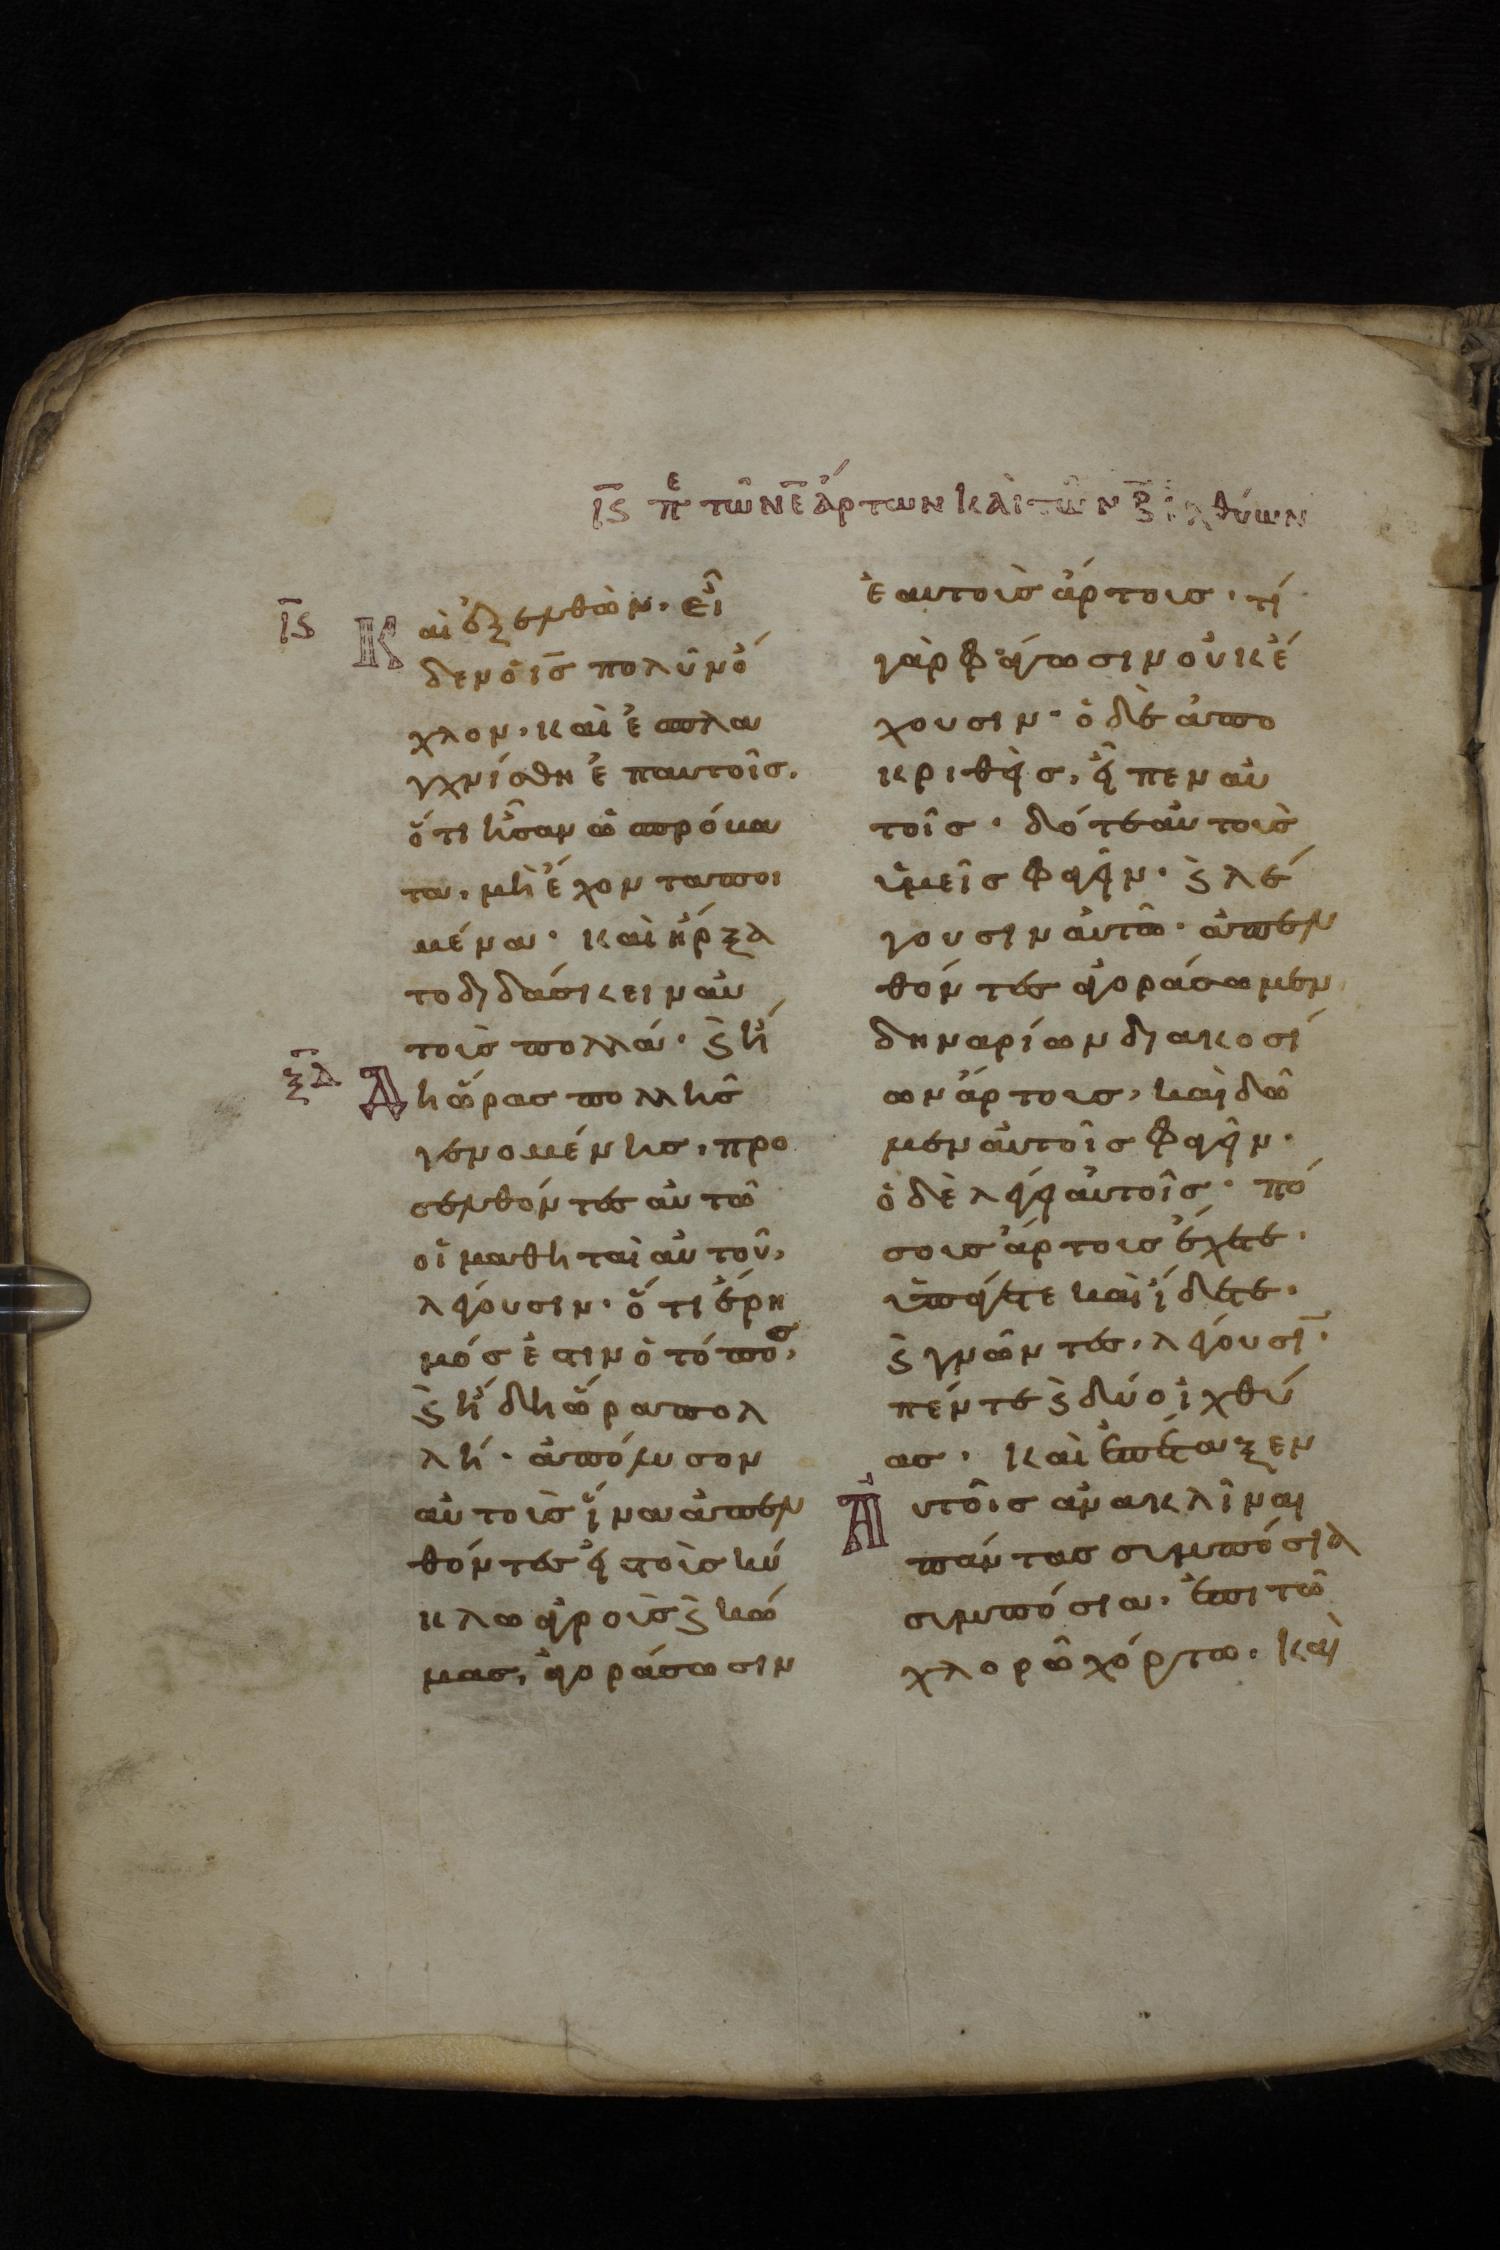 ιϛ πε τῶν ε ἄρτων καὶ τῶν β ἰχθύων
ιϛ
Καὶ ἐξελθὼν. εἶ
δεν ὁ ις πολὺν ὄ
χλον. καὶ ἐσπλα
γχνίσθη ἐπ αυτοῖς.
ὅτι ἦσαν ὡ σπρόμα
τα. μὴ ἔχοντα ποι
μένα. καὶ ἤρξα
το διδάσκειν αὐ
τοὺς πολλά. ϗ ἤ
ξδ
Δη ὥρας πολλῆς
γενομένης. προ
σελθόντες αὐτῶ
οἱ μαθηταὶ αὐτοῦ,
λέγουσιν. ὅτι ἔρη
μός ἐστιν ὁ τόπος,
ϗ ἤδη ὥρα πολ
λή. ἀπόλυσον
αὐτοὺς ἵνα ἀπελ
θόντες εἰς τοὺς κύ
κλω ἀγροὺς ϗ κώ
μας, ἀγοράσωσιν
ἑαυτοὺς ἄρτους. τί
γὰρ φάγωσιν οὐκ ἔ
χουσιν. ὁ δὲ ἀπο
κριθεὶς, εἶπεν αὐ
τοῖς. δότε αὐτοὺς
ὑμεῖς φαγεῖν. ϗ λέ
γουσιν αὐτῶ. ἀπελ
θόντες ἀγοράσωμεν
δηναρίων διακοσί
ων ἄρτους, καὶ δῶ
μεν αὐτοῖς φαγεῖν.
ὁ δὲ λέγει αὐτοῖς. πό
σους ἄρτους ἔχετε.
ὑπάγετε καὶ ἴδετε.
ϗ γνῶντες. λέγουσῑ.
πέντε ϗ δύο ἰχθύ
ας. καὶ ἐπέταξεν
Αὐτοῖς ἀνακλῖναι
πάντας συμπόσια
συμπόσια. ἐπὶ τῶ
χλορῶ χόρτω. καὶ